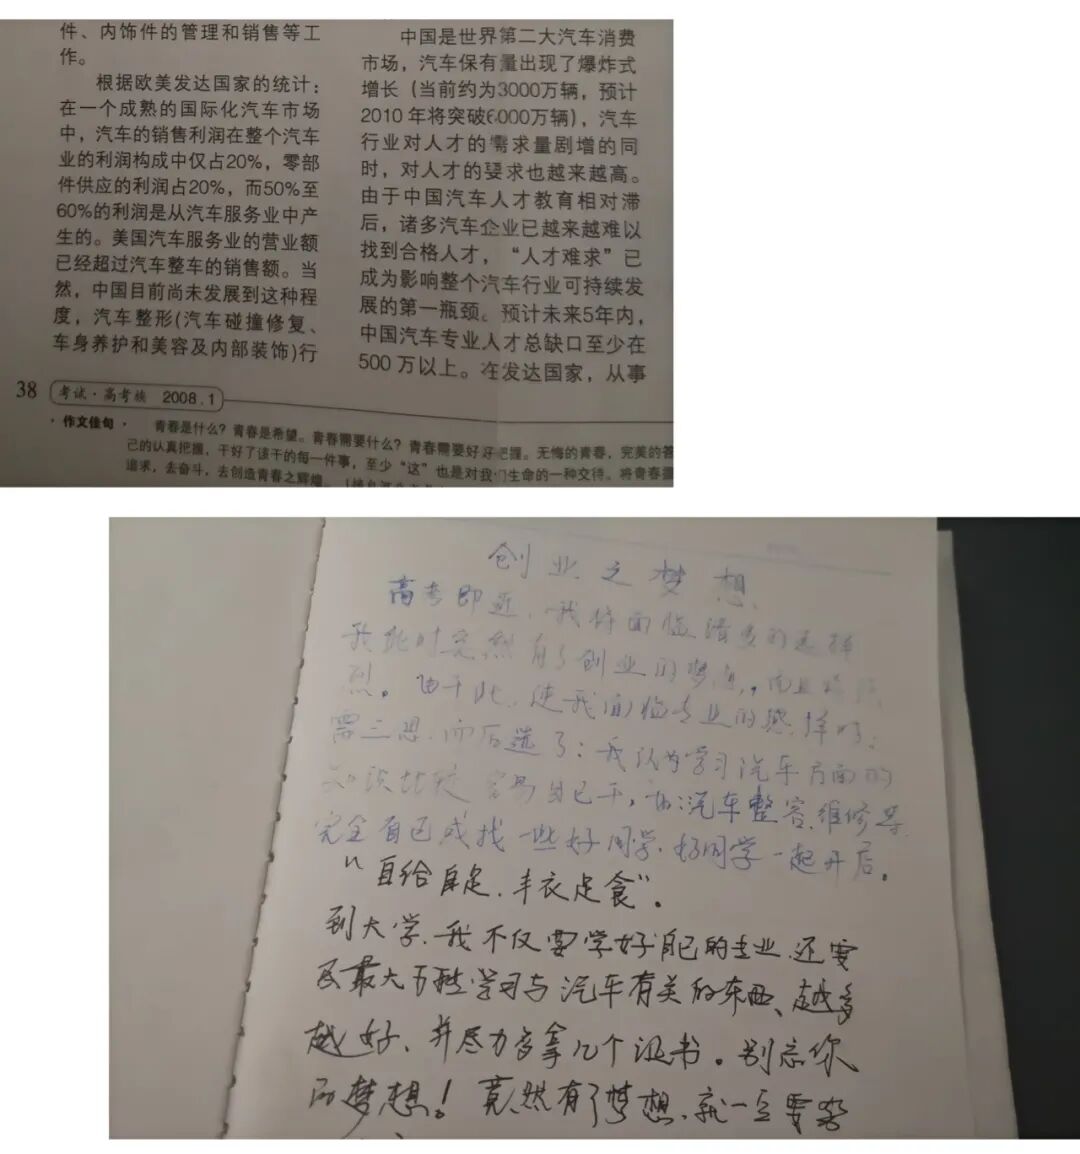 件、内饰件的管理和销售等工
作。
根据欧美发达国家的统计：
在一个成熟的国际化汽车市场
中，汽车的销售利润在整个汽车
业的利润构成中仅占20%，零部
件供应的利润占20%，而50%至
60%的利润是从汽车服务业中产
生的。美国汽车服务业的营业额
已经超过汽车整车的销售额。当
然，中国目前尚未发展到这种程
度，汽车整形(汽车碰撞修复、
车身养护和美容及内部装饰)行
中国是世界第二大汽车消费
市场，汽车保有量出现了爆炸式
增长（当前约为3000万辆，预计
2010年将突破6000万辆），汽车
行业对人才的需求量剧增的同
时，对人才的要求也越来越高。
由于中国汽车人才教育相对滞
后，诸多汽车企业已越来越难以
找到合格人才，“人才难求”已
成为影响整个汽车行业可持续发
展的第一瓶颈。预计未来5年内，
中国汽车专业人才总缺口至少在
500万以上。在发达国家，从事
38 考试·高考族 2008.1
·作文佳句· 青春是什么？青春是希望。青春需要什么？青春需要好好把握。无悔的青春，完美的答
己的认真把握，干好了该干的每一件事，至少“这”也是对我们生命的一种交待。将青春
追求，去奋斗，去创造青春之辉煌。
创业之梦想
高考即近，我将面临 的选择
我此时竟然有了创业的梦想，而且
烈。由于此，使我面临专业的选择时，
需三思而后 了：我认为学习汽车方面的
知识比较容易自己干，如：汽车整容、维修等
完全自己或找一些好同学好同学一起开店。
“自给自足，丰衣足食”。
到大学，我不仅要学好自己的专业，还要
尽最大可能学习与汽车有关的东西、越多
越好，并尽力多拿几个证书。别忘你
的梦想！竟然有了梦想，就一定要努